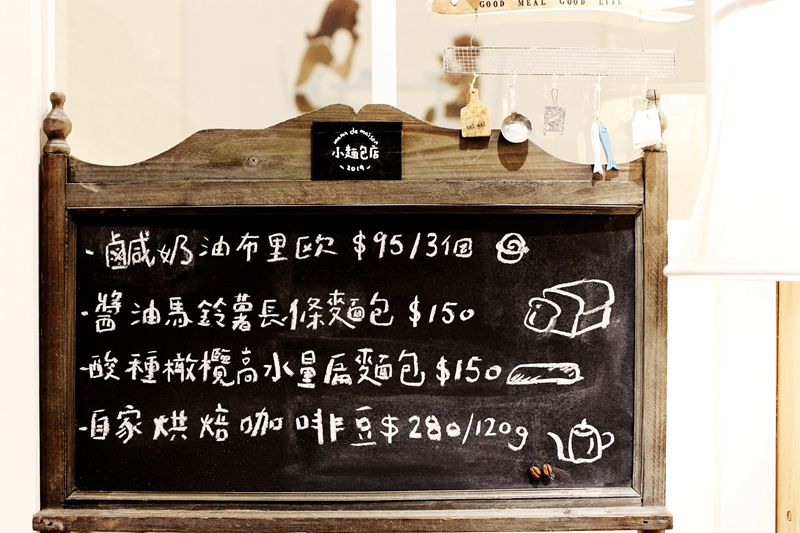 GOOD MEAL GOOD LIFE
mama de maison
小麵包店
-2019-
·鹹奶油布里歐 $95/3個
·醬油馬鈴薯長條麵包 $150
·酸種橄欖高水量扁麵包 $150
·自家烘焙咖啡豆 $280/120g